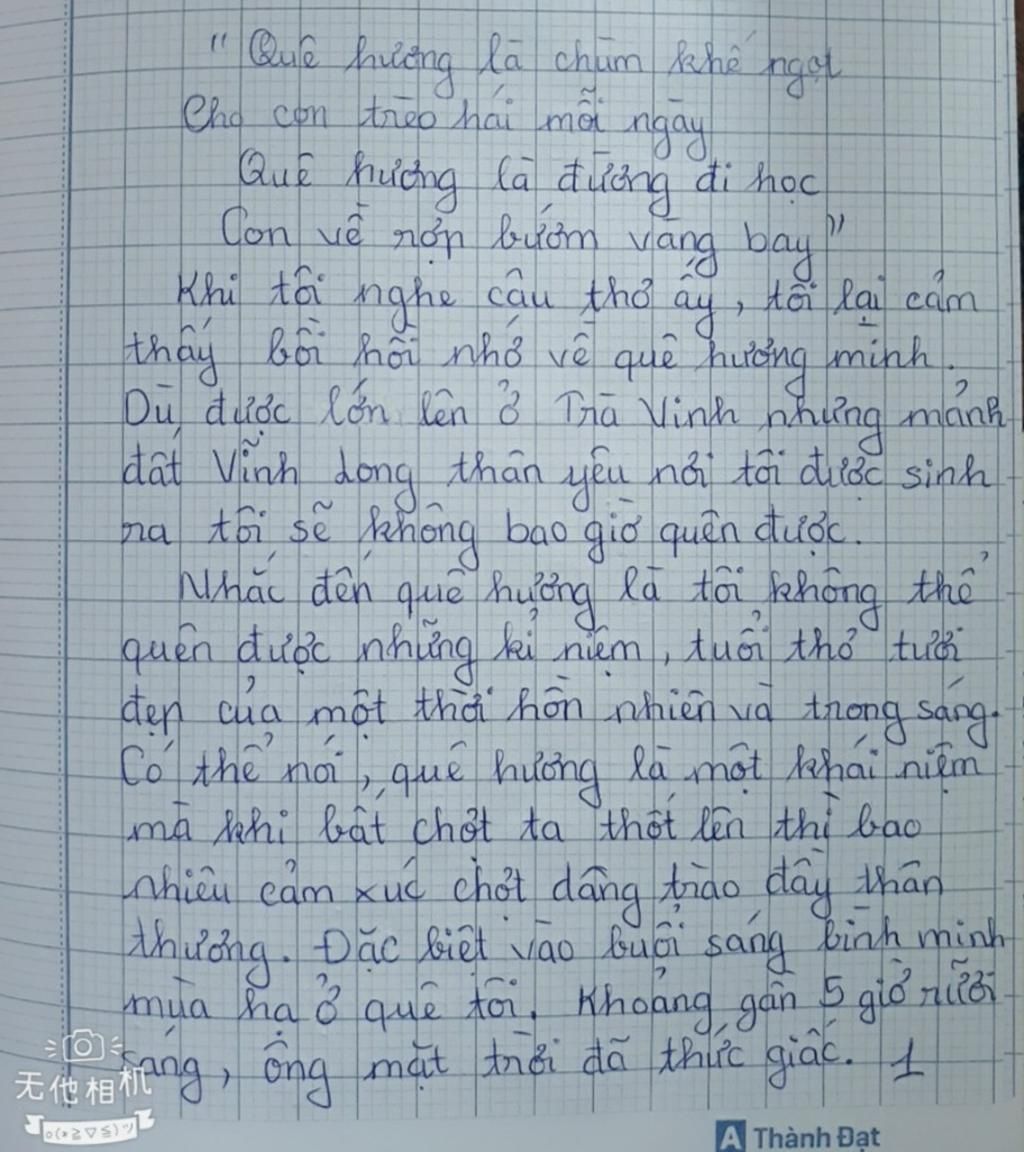 " Quê hương là chùm khế ngọt
Cho con trèo hái mỗi ngày
Quê hương là đường đi học
Con về rợp bướm vàng bay"
Khi tôi nghe câu thơ ấy, tôi lại cảm
thấy bồi hồi nhớ về quê hương mình.
Dù được lớn lên ở Trà Vinh nhưng mảnh
đất Vĩnh Long thân yêu nơi tôi được sinh
ra tôi sẽ không bao giờ quên được.
Nhắc đến quê hương là tôi không thể
quên được những kỉ niệm, tuổi thơ tươi
đẹp của một thời hồn nhiên và trong sáng.
Có thể nói, quê hương là một khái niệm
mà khi bất chợt ta thốt lên thì bao
nhiêu cảm xúc chợt dâng trào đầy thân
thương. Đặc biệt vào buổi sáng bình minh
mùa hạ ở quê tôi. Khoảng gần 5 giờ rưỡi
sáng, ông mặt trời đã thức giấc. 1
无他相机
o(≧▽≦)ツ
A Thành Đạt